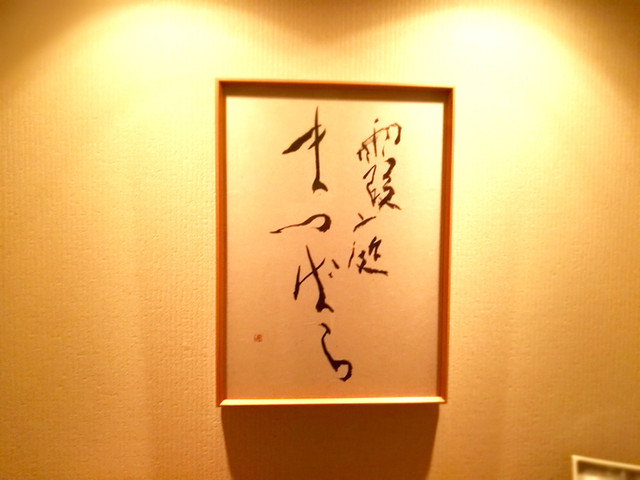 霞庭
まつばら